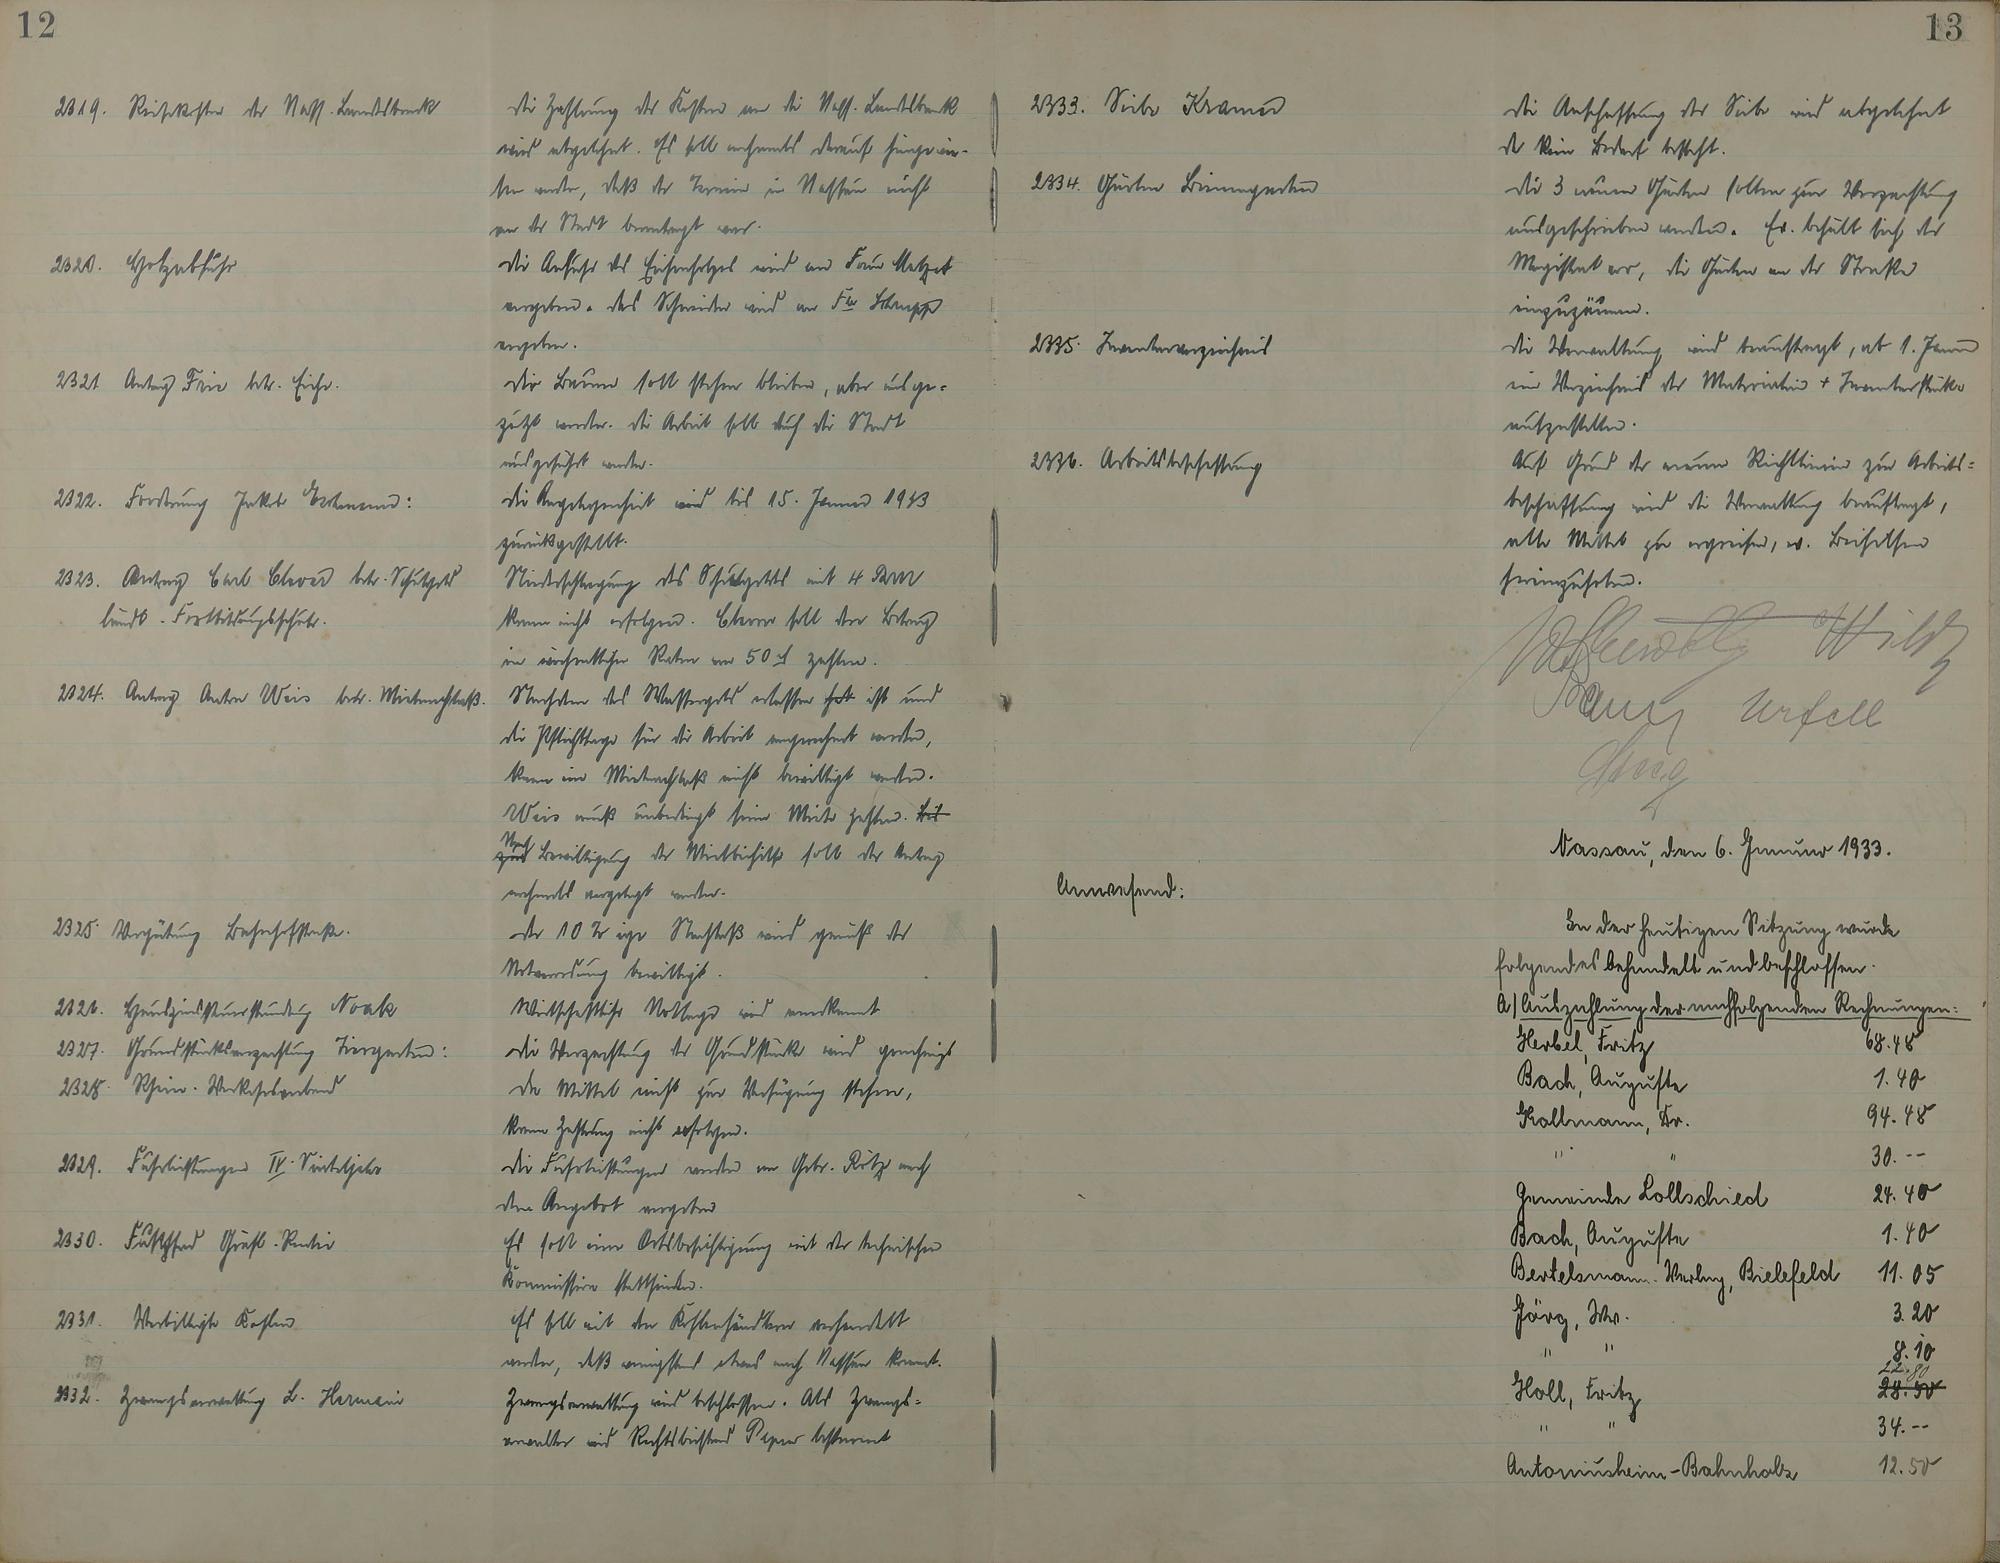 12
2319. Reisekosten der Nass. Landesbank
Die Zahlung der Kosten an die Nass. Landesbank
wird abgelehnt. Es soll nochmals darauf hingewie-
sen werden, daß der Termin in Nassau nicht
von der Stadt beantragt war.
2320. Holzabfuhr
Die Anfuhr des Eichenholzes wird an
vergeben. Das Schneiden wird an Fa
vergeben.
2321 Antrag betr. Eiche.
Der Baum soll stehen bleiben, aber ausge=
putzt werden. Die Arbeit soll durch die Stadt
ausgeführt werden.
2322. Forderung Jakob
Die Angelegenheit wird bis 15. Januar 1933
zurückgestellt.
2323. Antrag Carl betr. Schulgeld
ländl. Fortbildungsschule.
Niederschlagung des Schulgeldes mit 4 RM
kann nicht erfolgen. soll den Betrag
in wöchentlichen Raten von 50 ₰ zahlen.
2324. Antrag Anton Weis betr. Mietnachlaß.
Nachdem das Wassergeld erlassen ist und
die Pflichttage für die Arbeit angerechnet werden,
kann ein Mietnachlaß nicht bewilligt werden.
Weis muß unbedingt seine Miete zahlen.
Nach Bewilligung der Mietbeihilfe soll der Antrag
nochmals vorgelegt werden.
2325. Vergütung Bahnhofstraße.
Der 10 %ige Nachlaß wird gemäß der
Notverordnung bewilligt.
2326. Hauszinssteuerstundung Noak
Wirtschaftliche Notlage wird anerkannt
2327. Grundstücksverpachtung Tiergarten:
Die Verpachtung der Grundstücke wird genehmigt
2328. Rhein. Verkehrsverband
Da Mittel nicht zur Verfügung stehen,
kann Zahlung nicht erfolgen.
2329. Fuhrleistungen IV. Vierteljahr
Die Fuhrleistungen werden an Gebr. Ritz nach
dem Angebot vergeben
2330. Fußpfad
Es soll eine Ortsbesichtigung mit der technischen
Kommission stattfinden.
2331. Verbilligte Kohlen
Es soll mit den Kohlenhändlern verhandelt
werden, daß wenigstens etwas nach Nassau kommt.
2332. Zwangsverwaltung L. Hermani
Zwangsverwaltung wird beschlossen. Als Zwangs=
verwalter wird Rechtsbeistand bestimmt
13
2333. Siebe Kramer
Die Anschaffung der Siebe wird abgelehnt
da kein Bedarf besteht.
2334. Gärten
Die 3 neuen Gärten sollen zur Verpachtung
ausgeschrieben werden. Ev. behält sich der
Magistrat vor, die Gärten an der Straße
einzuzäunen.
2335. Inventarverzeichnis
Die Verwaltung wird beauftragt, ab 1. Januar
ein Verzeichnis der Materialien + Inventarstücke
aufzustellen.
2336. Arbeitsbeschaffung
Auf Grund der neuen Richtlinien zur Arbeits=
beschaffung wird die Verwaltung beauftragt,
alle Mittel zu ergreifen, u. Beihilfen
hereinzuholen.
Wild
Urfell
Nassau, den 6. Januar 1933.
Anwesend:
In der heutigen Sitzung wurde
folgendes behandelt und beschlossen.
A) Auszahlung der nachfolgenden Rechnungen:
Herbel, Fritz 68.48
Bach, Auguste 1.40
Hollmann, Dr. 94.48
" " 30.--
Gemeinde Lollschied 24.40
Bach, Auguste 1.40
Bertelsmann-Verlag, Bielefeld 11.05
Jörg, Ww. 3.20
" " 8.10
22.80
Holl, Fritz 28.50
" " 34.--
Antoniusheim-Bahnholz 12.50